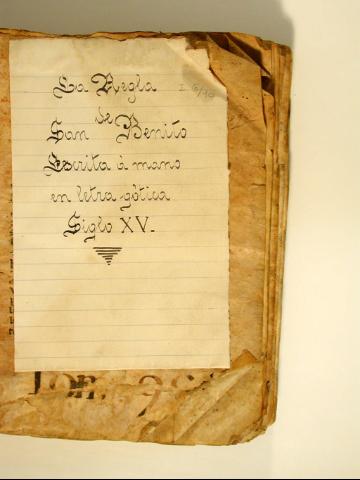 La Regla
de
San Benito
Escrita á mano
en letra gótica
Siglo XV.